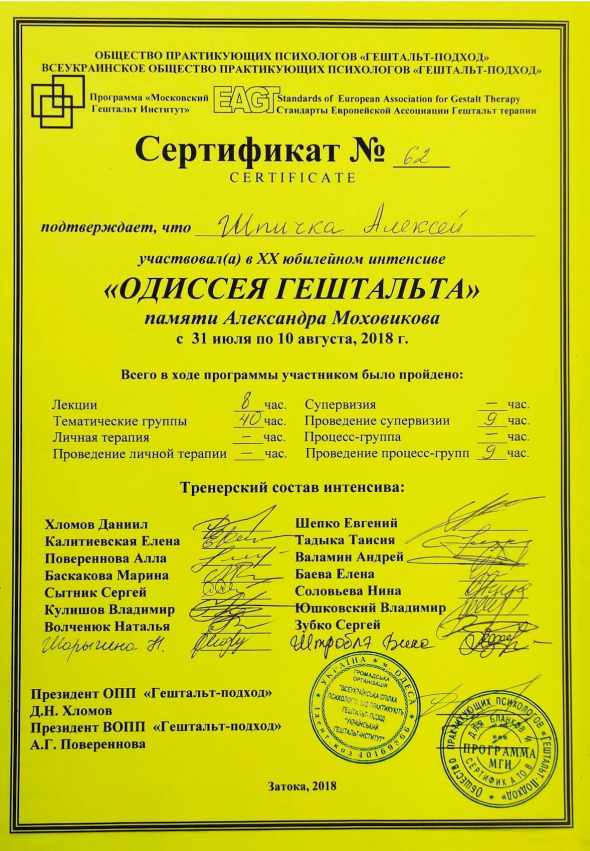 ОБЩЕСТВО ПРАКТИКУЮЩИХ ПСИХОЛОГОВ «ГЕШТАЛЬТ-ПОДХОД»
ВСЕУКРАИНСКОЕ ОБЩЕСТВО ПРАКТИКУЮЩИХ ПСИХОЛОГОВ «ГЕШТАЛЬТ-ПОДХОД»
Программа «Московский Гештальт Институт»
EAGT
Standards of European Association for Gestalt Therapy
Стандарты Европейской Ассоциации Гештальт терапии
Сертификат № 62
CERTIFICATE
подтверждает, что Шпичка Алексей
участвовал(а) в XX юбилейном интенсиве
«ОДИССЕЯ ГЕШТАЛЬТА»
памяти Александра Моховикова
с 31 июля по 10 августа, 2018 г.
Всего в ходе программы участником было пройдено:
Лекции 8 час. Супервизия – час.
Тематические группы 40 час. Проведение супервизии 9 час.
Личная терапия – час. Процесс-группа – час.
Проведение личной терапии – час. Проведение процесс-групп 9 час.
Тренерский состав интенсива:
Хломов Даниил Шепко Евгений
Калитиевская Елена Тадыка Таисия
Повереннова Алла Валамин Андрей
Баскакова Марина Баева Елена
Сытник Сергей Соловьева Нина
Кулишов Владимир Юшковский Владимир
Волченюк Наталья Зубко Сергей
Шарыгина Н.
Президент ОПП «Гештальт-подход»
Д.Н. Хломов
Президент ВОПП «Гештальт-подход»
А.Г. Повереннова
УКРАЇНА * м. ОДЕСА
ГРОМАДСЬКА
ОРГАНІЗАЦІЯ
"ВСЕУКРАЇНСЬКА СПІЛКА
ГЕШТАЛЬТ-ПІДХІД
"УКРАЇНСЬКИЙ
ГЕШТАЛЬТ-ІНСТИТУТ"
ОБЩЕСТВО ПРАКТИКУЮЩИХ ПСИХОЛОГОВ «ГЕШТАЛЬТ-ПОДХОД»
ДЛЯ БЛАНКОВ И СЕРТИФИКАТОВ
ПРОГРАММА
МГИ
Затока, 2018